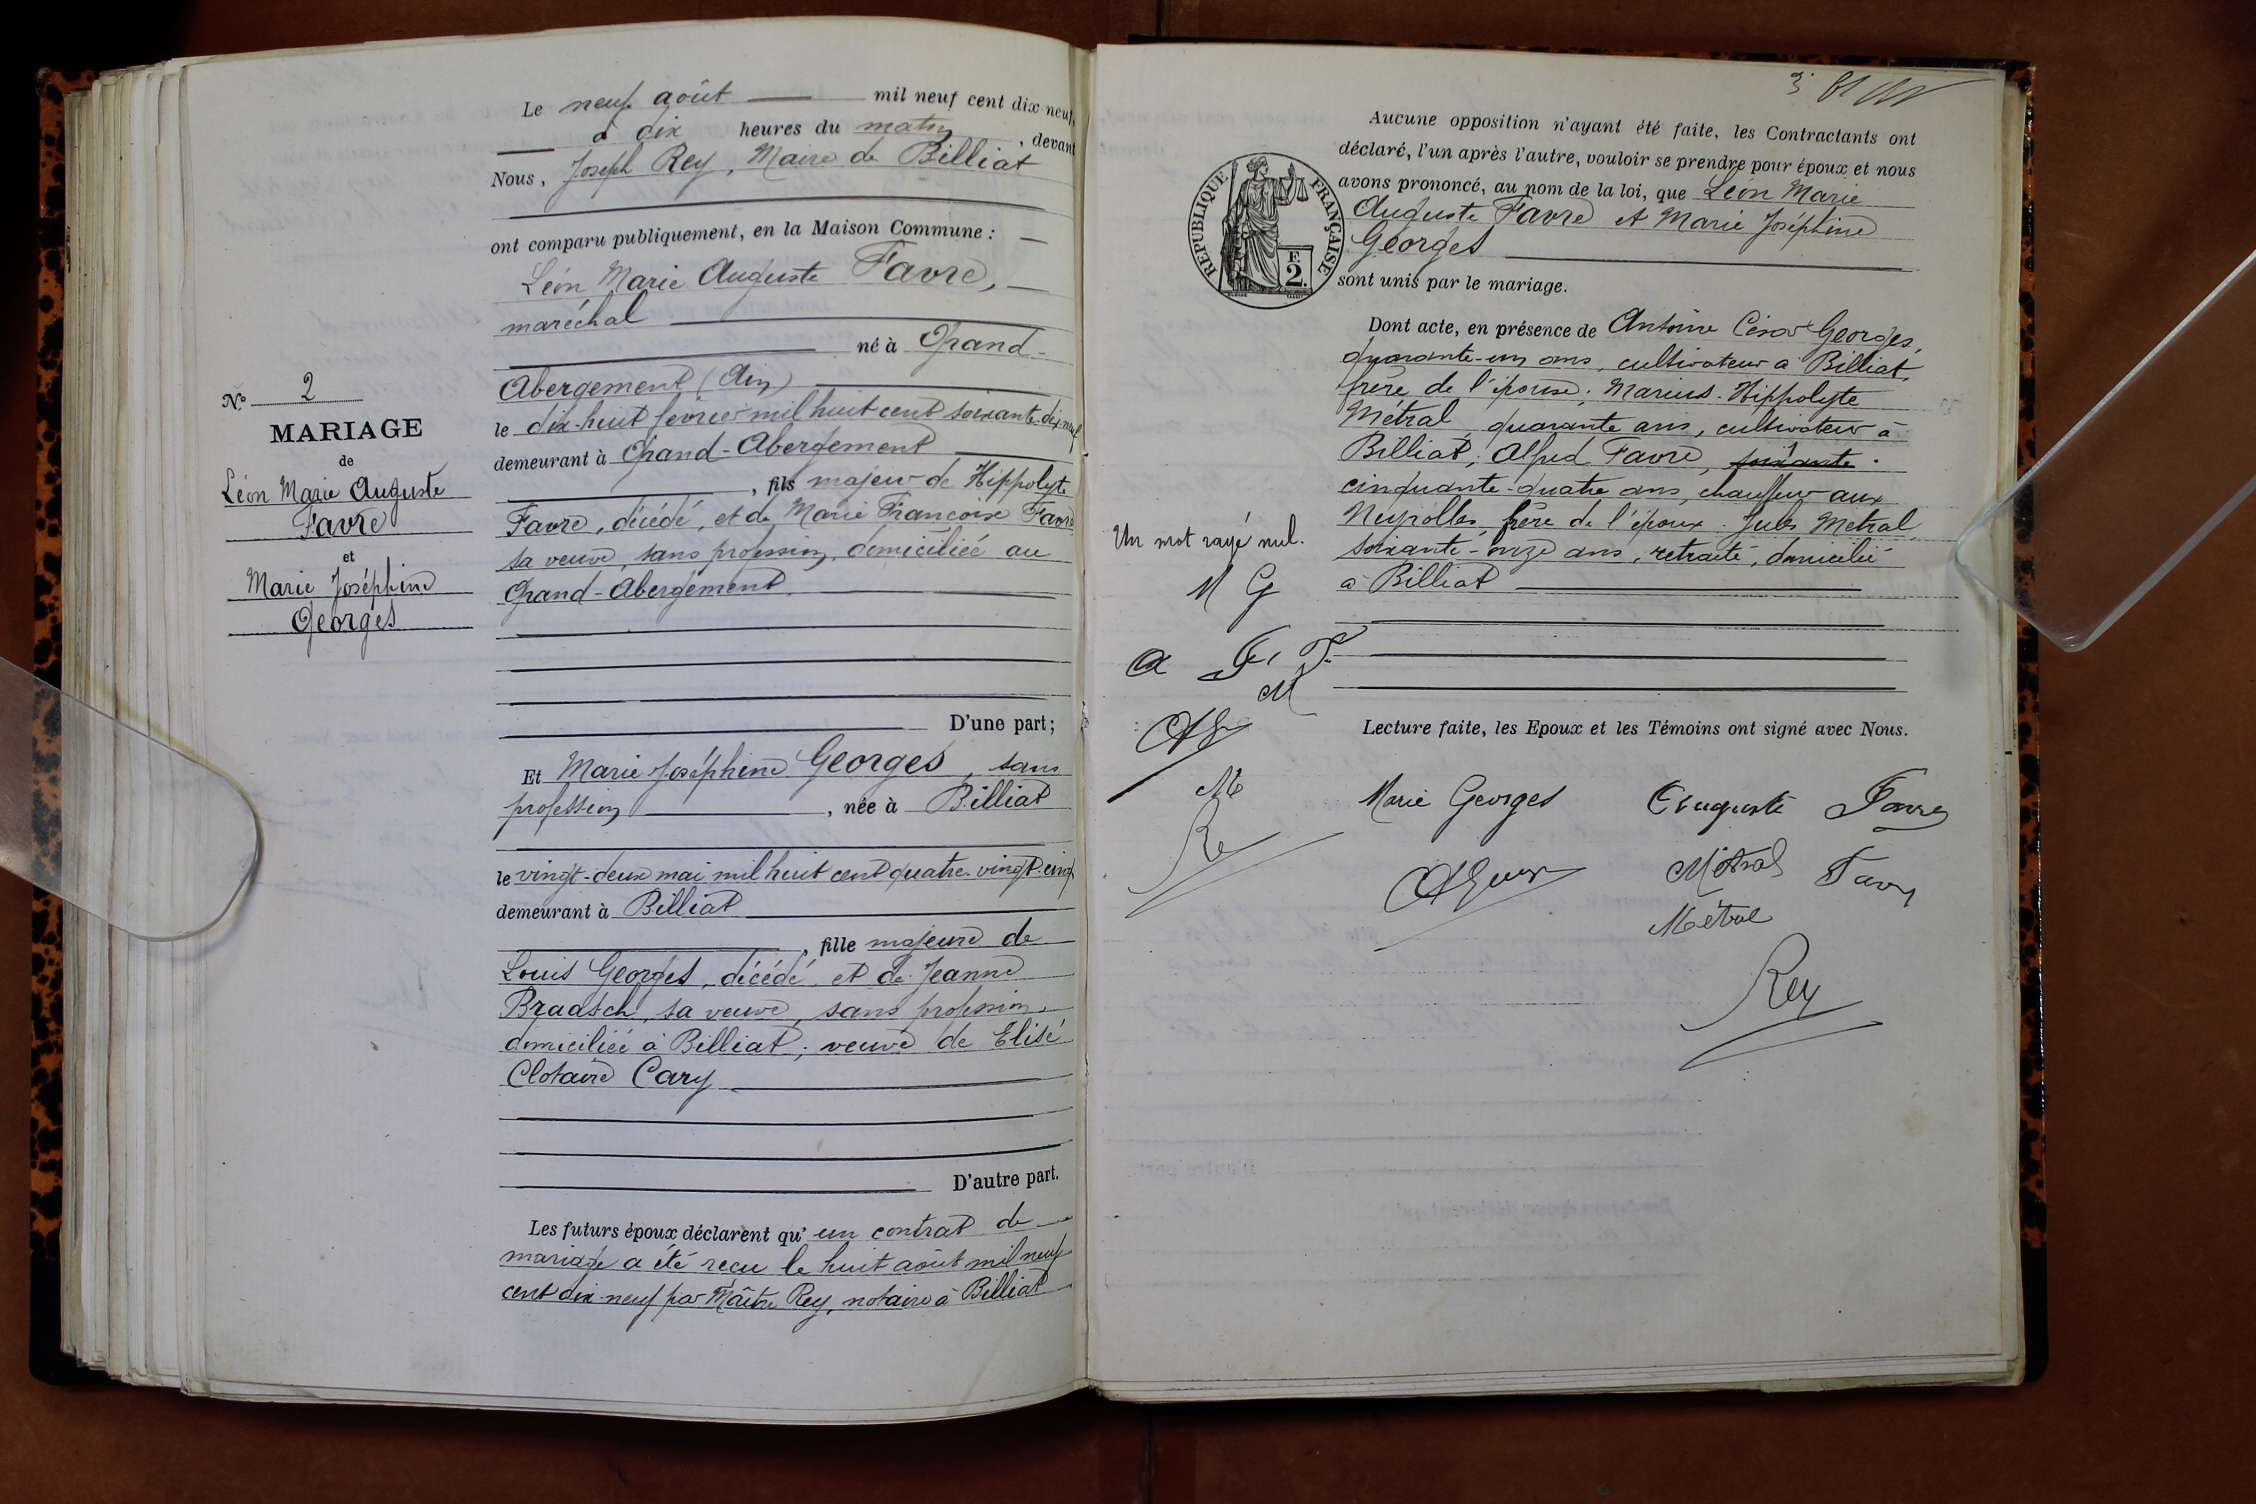 Le neuf août mil neuf cent dix-neuf,
à dix heures du matin, devant
Nous, Joseph Rey, Maire de Billiat
ont comparu publiquement, en la Maison Commune :
Léon Marie Auguste Favre,
maréchal
né à Grand-
Abergement (Ain)
le dix-huit février mil huit cent soixante-dix-neuf
demeurant à Grand-Abergement
, fils majeur de Hippolyte
Favre, décédé, et de Marie Françoise Favre
sa veuve, sans profession, domiciliée au
Grand-Abergement.
D'une part;
Et Marie Joséphine Georges, sans
profession, née à Billiat
le vingt-deux mai mil huit cent quatre-vingt-cinq
demeurant à Billiat
, fille majeure de
Louis Georges, décédé, et de Jeanne
Braasch, sa veuve, sans profession,
domiciliée à Billiat; veuve de Elisé
Clotaire Cary
D'autre part.
Les futurs époux déclarent qu'un contrat de
mariage a été reçu le huit août mil neuf
cent dix-neuf par Maître Rey, notaire à Billiat
N° 2
MARIAGE
de
Léon Marie Auguste
Favre
et
Marie Joséphine
Georges
Aucune opposition n'ayant été faite, les Contractants ont
déclaré, l'un après l'autre, vouloir se prendre pour époux et nous
avons prononcé, au nom de la loi, que Léon Marie
Auguste Favre et Marie Joséphine
Georges
sont unis par le mariage.
REPUBLIQUE FRANÇAISE
F.
2.
Dont acte, en présence de Antoine César Georges,
quarante-un ans, cultivateur à Billiat,
frère de l'épouse; Marius-Hippolyte
Métral, quarante ans, cultivateur à
Billiat; Alfred Favre, soixante
cinquante-quatre ans, chauffeur aux
Neyrolles, frère de l'époux. Jules Métral,
soixante-onze ans, retraité, domicilié
à Billiat
Un mot rayé nul.
M G
A F
M
AG
Me
Re
Lecture faite, les Epoux et les Témoins ont signé avec Nous.
Marie Georges Auguste Favre
Métral Favre
Métral
Rey